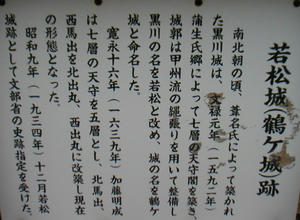 若松城(鶴ケ城)跡
南北朝の頃、葦名氏によって築かれ
た黒川城は、文禄元年(一五九二年)
蒲生氏郷によって七層の天守閣を築き、
城郭は甲州流の縄張りを用いて整備し
黒川の名を若松と改め、城の名を鶴ケ
城と命名した。
寛永十六年(一六三九年)加藤明成
は七層の天守を五層とし、北馬出、
西馬出を北出丸、西出丸に改築し現在
の形態となった。
昭和九年(一九三四年)十二月若松
城跡として文部省の史跡指定を受けた。